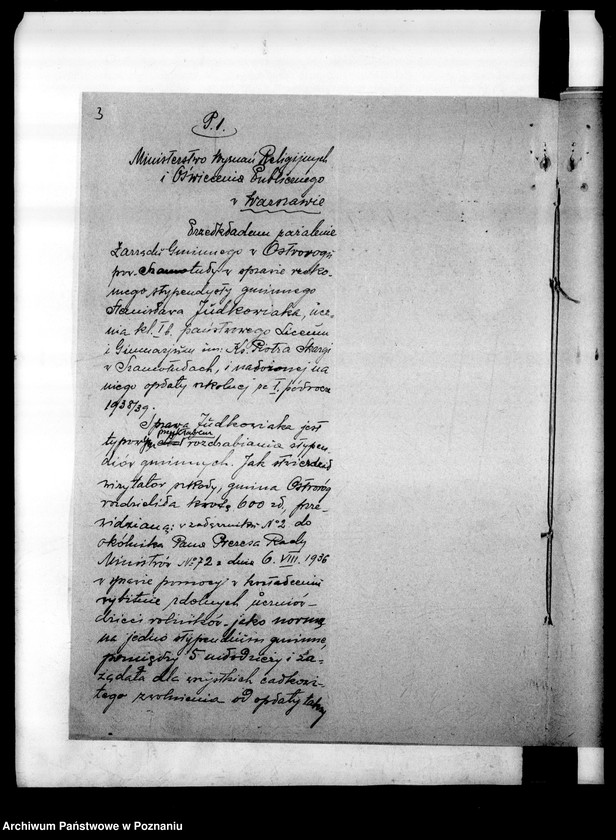 3
P. 1.
Ministerstwo Wyznań Religijnych
i Oświecenia Publicznego
w Warszawie
Przedkładam zażalenie
Zarządu Gminnego w Ostrorogu
pow. Szamotuły w sprawie rzeko-
mego stypendysty gminnego
Stanisława Judkowiaka, ucz-
nia kl. I b. państwowego Liceum
i Gimnazjum im. Ks. Piotra Skargi
w Szamotułach, i nałożonej na
niego opłaty szkolnej za I. półrocze
1938/39.
Sprawa Judkowiaka jest
typowym przykładem rozdrabiania stypen-
diów gminnych. Jak stwierdził
wizytator szkoły, gmina Ostroróg
rozdzieliła kwotę 600 zł, prze-
widzianą w załączniku No 2 do
okólnika Pana Prezesa Rady
Ministrów No 72 z dnia 6. VIII. 1936
w sprawie pomocy w kształceniu
wybitnie zdolnych uczniów -
dzieci rolników - jako normę
na jedno stypendium gminne,
pomiędzy 5 młodzieży i za-
żądała dla wszystkich całkowi-
tego zwolnienia od opłaty taksy
Archiwum Państwowe w Poznaniu